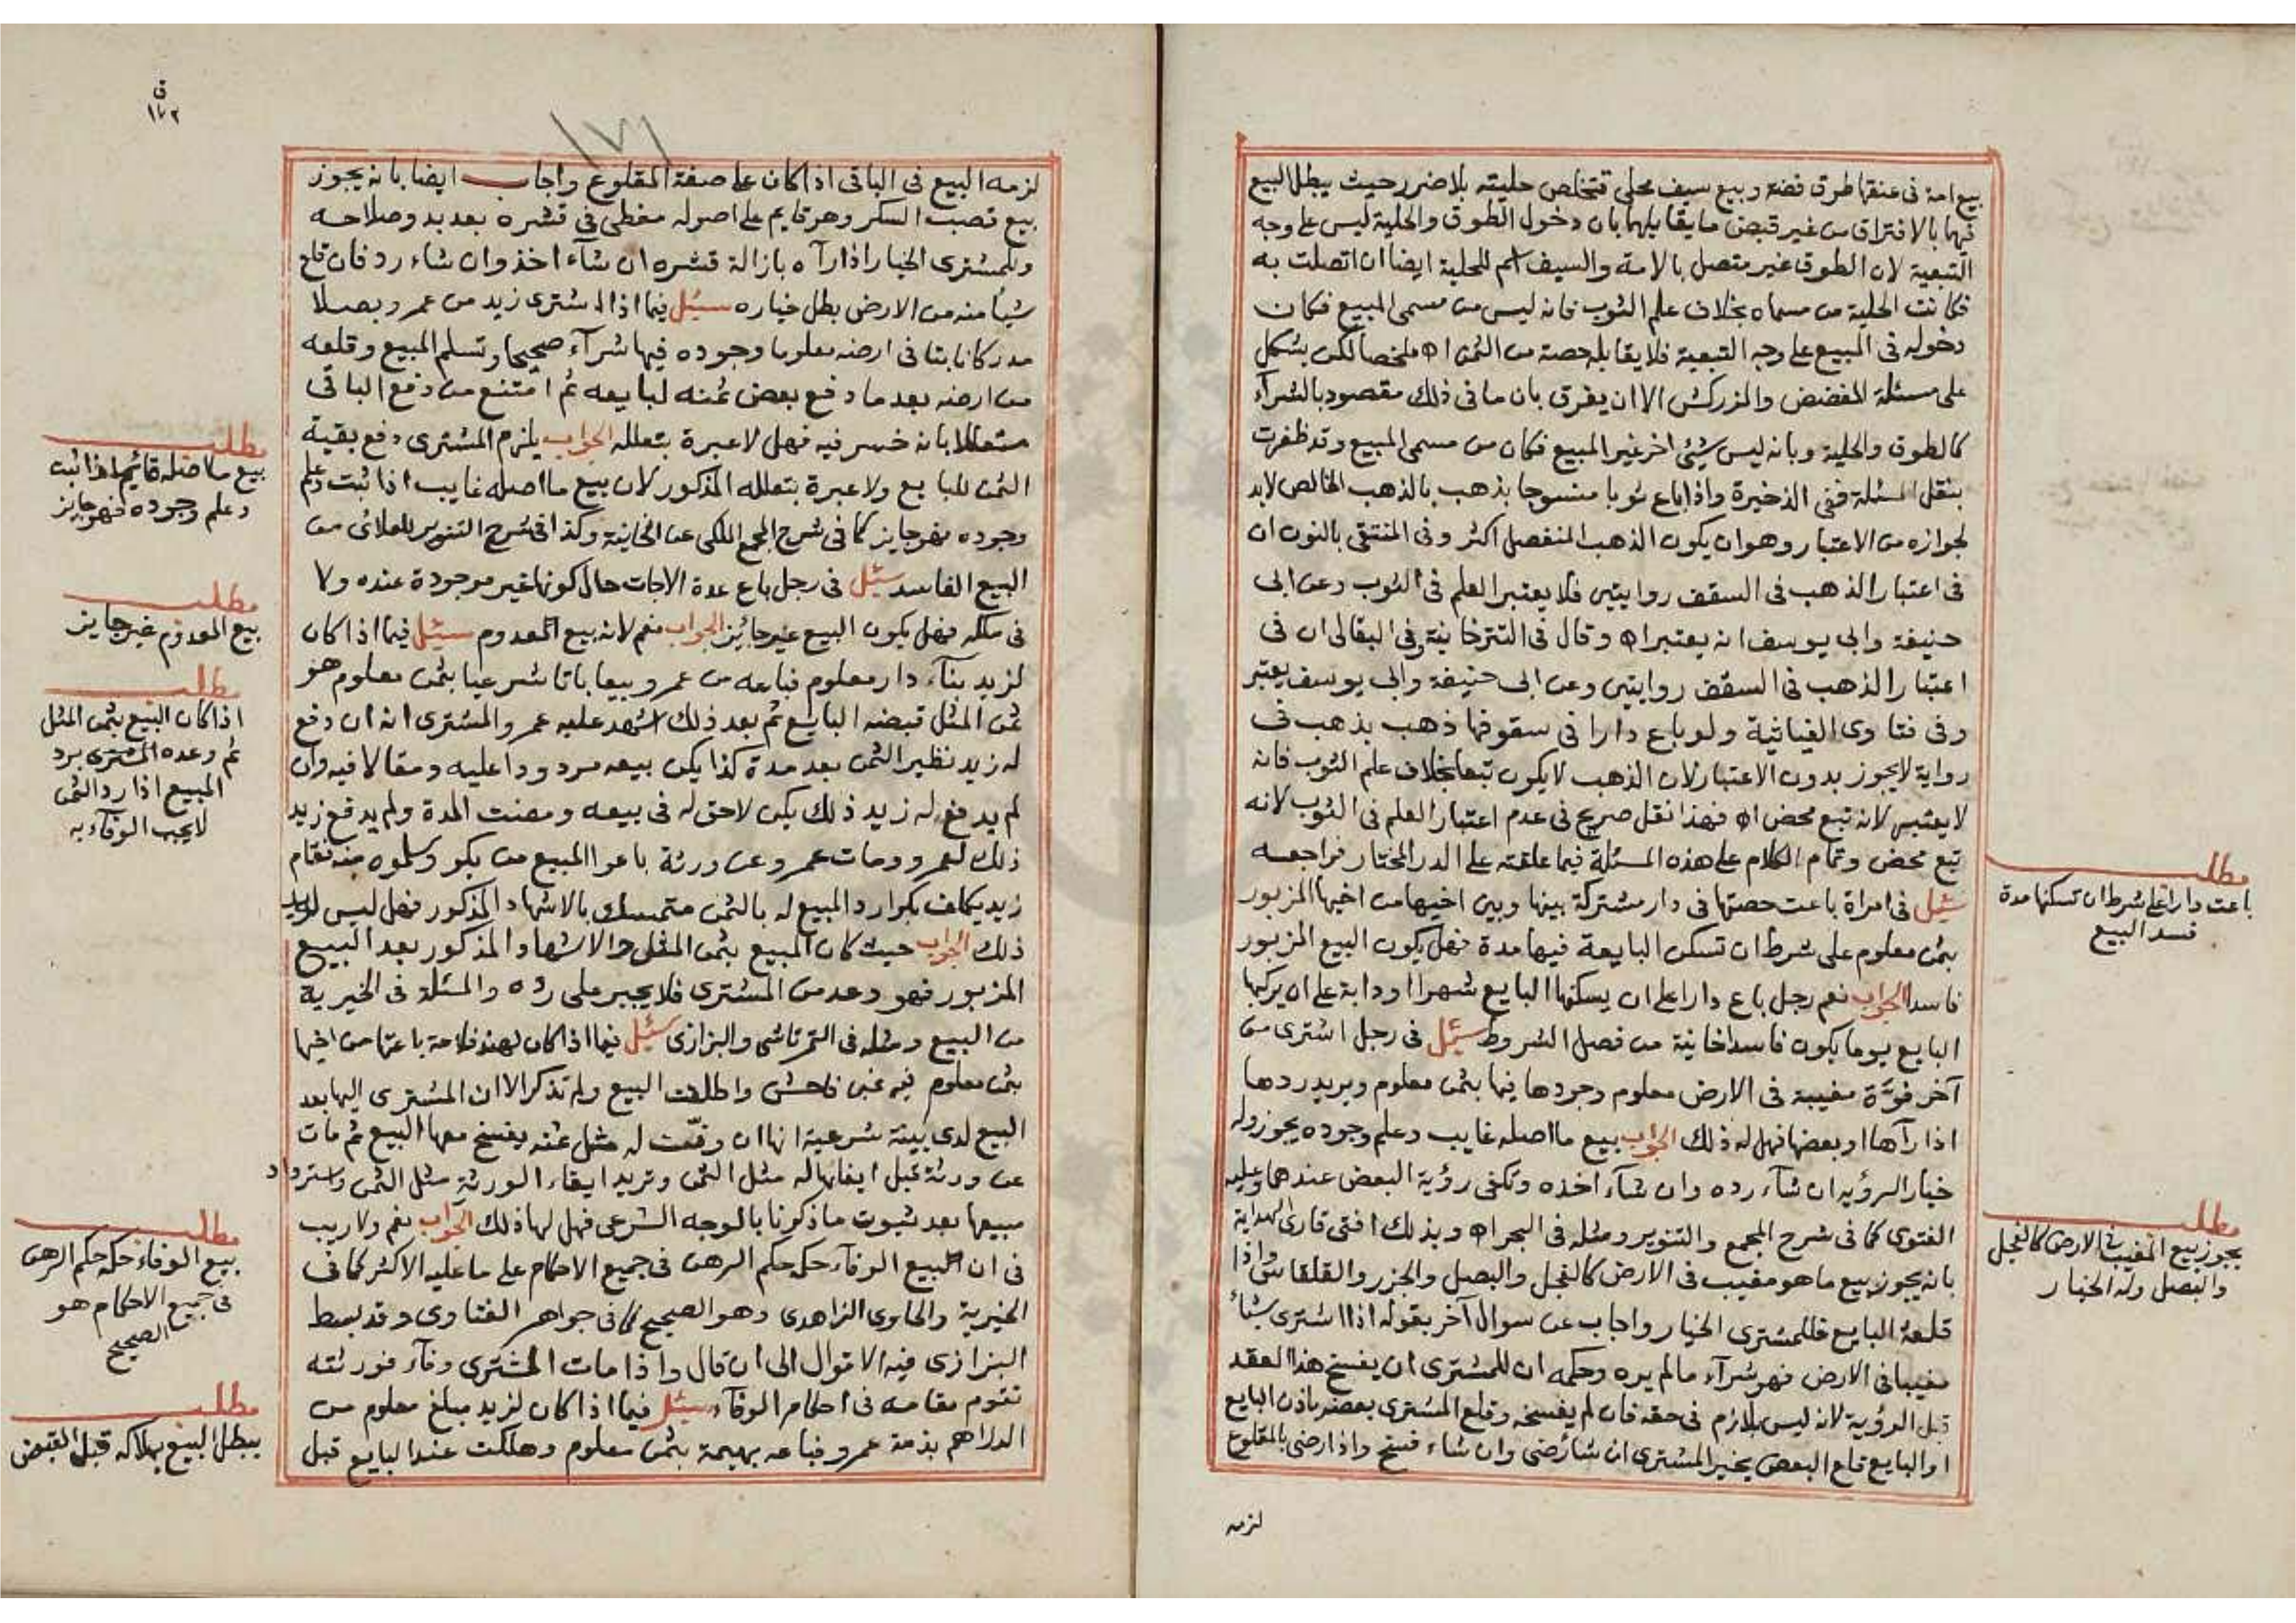 بيع امة فى عنقها طوق فضة وبيع سيف محلى تتخلص حليته بلا ضرر حيث يبطل البيع
فيهما بالافتراق من غير قبض ما يقابلهما بان دخول الطوق والحلية ليس على وجه
التبعية لان الطوق غير متصل بالامة والسيف اسم للحلية ايضا ان اتصلت به
فكانت الحلية من مسماه بخلاف علم الثوب فانه ليس من مسمى المبيع فكان
دخوله فى المبيع على وجه التبعية فلا يقابله حصة من الثمن اه ملخصا لكن يشكل
على مسئلة المفضض والمزركش الا ان يفرق بان ما فى ذلك مقصود بالشرآء
كالطوق والحلية وبانه ليس شيئ اخر غير المبيع فكان من مسمى المبيع وقد ظفرت
بنقل المسئلة ففى الذخيرة واذا باع ثوبا منسوجا بذهب بالذهب الخالص لابد
لجوازه من الاعتبار وهو ان يكون الذهب المنفصل اكثر وفى المنتقى بالنون ان
فى اعتبار الذهب فى السقف روايتين فلا يعتبر العلم فى الثوب وعن ابى
حنيفة وابى يوسف انه يعتبر اه وقال فى التترخانية وفى البقالى ان فى
اعتبار الذهب فى السقف روايتين وعن ابى حنيفة وابى يوسف يعتبر
وفى فتاوى الغياثية ولو باع دارا فى سقوفها ذهب بذهب فى
رواية لا يجوز بدون الاعتبار لان الذهب لا يكون تبعا بخلاف علم الثوب فانه
لا يعتبر لانه تبع محض اه فهذا نقل صريح فى عدم اعتبار العلم فى الثوب لانه
تبع محض وتمام الكلام على هذه المسئلة فيما علقته على الدر المختار فراجعه
سئيل فى امراة باعت حصتها فى دار مشتركة بينها وبين اخيها من اخيها المزبور
بثمن معلوم على شرط ان تسكن البايعة فيها مدة فهل يكون البيع المزبور
فاسدا الجواب نعم رجل باع دارا على ان يسكنها البايع شهرا او دابة على ان يركبها
البايع يوما يكون فاسدا خانية من فصل الشروط سئيل فى رجل اشترى من
آخر فوّة مغيبة فى الارض معلوم وجودها فيها بثمن معلوم ويريد ردها
اذا رآها او بعضها فهل له ذلك الجواب بيع ما اصله غايب وعلم وجوده يجوز وله
خيار الرؤيه ان شآء رده وان شآء اخذه وتكفى رؤية البعض عندهما وعليه
الفتوى كما فى شرح المجمع والتنوير ومثله فى البحر اه وبذلك افتى قارئ الهداية
بانه يجوز بيع ما هو مغيب فى الارض كالفجل والبصل والجزر والقلقاس واذا
قلعه البايع فللمشترى الخيار واجاب عن سوال آخر بقوله اذا اشترى شيأ
مغيبا فى الارض فهو شرآء ما لم يره وحكمه ان للمشترى ان يفسخ هذا العقد
قبل الرؤية لانه ليس بلازم فى حقه فان لم يفسخه وقلع المشترى بعضه باذن البايع
او البايع قلع البعض يخير المشترى ان شآء رضى وان شاء فسخ واذا رضى بالمقلوع
لزمه
مطلب
باعت دارا على شرط ان تسكنها مدة
فسد البيع
مطلب
يجوز بيع المغيب فى الارض كالفجل
والبصل وله الخيار
ق
١٧٢
١٧١
لزمه البيع فى الباقى اذا كان على صفة المقلوع واجاب ايضا بانه يجوز
بيع قصب السكر وهو قايم على اصوله مغطى فى قشره بعد بدو صلاحه
وللمشترى الخيار اذا رآه بازالة قشره ان شآء اخذ وان شاء رد فان قلع
شيأ منه من الارض بطل خياره سئيل فيما اذا اشترى زيد من عمرو بصلا
مدركا نابتا فى ارضه معلوما وجوده فيها شرآء صحيحا وتسلم المبيع وقلعه
من ارضه بعد ما دفع بعض ثمنه لبايعه ثم امتنع من دفع الباقى
متعللا بانه خسر فيه فهل لا عبرة بتعلله الجواب يلزم المشترى دفع بقية
الثمن للبايع ولا عبرة بتعلله المذكور لان بيع ما اصله غايب اذا ثبت وعلم
وجوده فهو جايز كما فى شرح المجمع الملكى عن الخانية وكذا فى شرح التنوير للعلائى من
البيع الفاسد سئيل فى رجل باع عدة الاجات حال كونها غير موجودة عنده ولا
فى ملكه فهل يكون البيع غير جائز الجواب نعم لانه بيع المعدوم سئيل فيما اذا كان
لزيد بنآء دار معلوم فباعه من عمرو بيعا باتا شرعيا بثمن معلوم هو
ثمن المثل قبضه البايع ثم بعد ذلك اشهد عليه عمرو المشترى انه ان دفع
له زيد نظير الثمن بعد مدة كذا يكن بيعه مردودا عليه ومقالا فيه وان
لم يدفع له زيد ذلك يكن لا حق له فى بيعه ومضت المدة ولم يدفع زيد
ذلك لعمرو ومات عمرو عن ورثة باعوا المبيع من بكر وتسلموه منه فقام
زيد يكلف بكرا رد المبيع له بالثمن متمسك بالاشهاد المذكور فهل ليس لزيد
ذلك الجواب حيث كان المبيع بثمن المثل والاشهاد المذكور بعد البيع
المزبور فهو وعد من المشترى فلا يجبر على رده والمسئلة فى الخيرية
من البيع ومثله فى التمرتاشى والبزازى سئيل فيما اذا كان لهند فلاحة باعتها من اخيها
بثمن معلوم فيه غبن فاحش واطلقت البيع ولم تذكر الا ان المشترى اليها بعد
البيع لدى بينة شرعية انها ان وفّت له مثل ثمنه يفسخ معها البيع ثم مات
عن ورثة قبل ايفائها له مثل الثمن وتريد ايفاء الورثة مثل الثمن واسترداد
مبيعها بعد ثبوت ما ذكرنا بالوجه الشرعى فهل لها ذلك الجواب نعم ولا ريب
فى ان البيع الوفآء حكمه حكم الرهن فى جميع الاحكام على ما عليه الاكثر كما فى
الخيرية والحاوى الزاهدى وهو الصحيح كما فى جواهر الفتاوى وقد بسط
البزازى فيه الاقوال الى ان قال واذا مات المشترى وفآء فورثته
تقوم مقامه فى احكام الوفآء سئيل فيما اذا كان لزيد مبلغ معلوم من
الدراهم بذمة عمرو فباعه بهيمة بثمن معلوم وهلكت عند البايع قبل
مطلب
بيع ما اصله قايم اذا نبت
وعلم وجوده فهو جايز
مطلب
بيع المعدوم غير جايز
مطلب
اذا كان البيع بثمن المثل
ثم وعده المشترى برد
المبيع اذا رد الثمن
لا يجب الوفآء به
مطلب
بيع الوفاء حكمه حكم الرهن
فى جميع الاحكام هو
الصحيح
مطلب
يبطل البيع بهلاكه قبل القبض